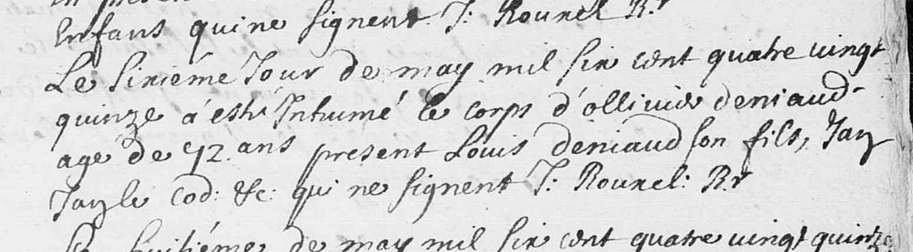 Enfans qui ne signent J: Rouxel Rr
Le sixiéme Jour de may mil six cent quatre vingt
quinze a esté Inhumé le corps d'ollivier deniaud
agé de 72 ans present Louis deniaud son fils, Jan
Jayle cod: &c: qui ne signent J: Rouxel: Rr
Le huitiéme de may mil six cent quatre vingt quinze